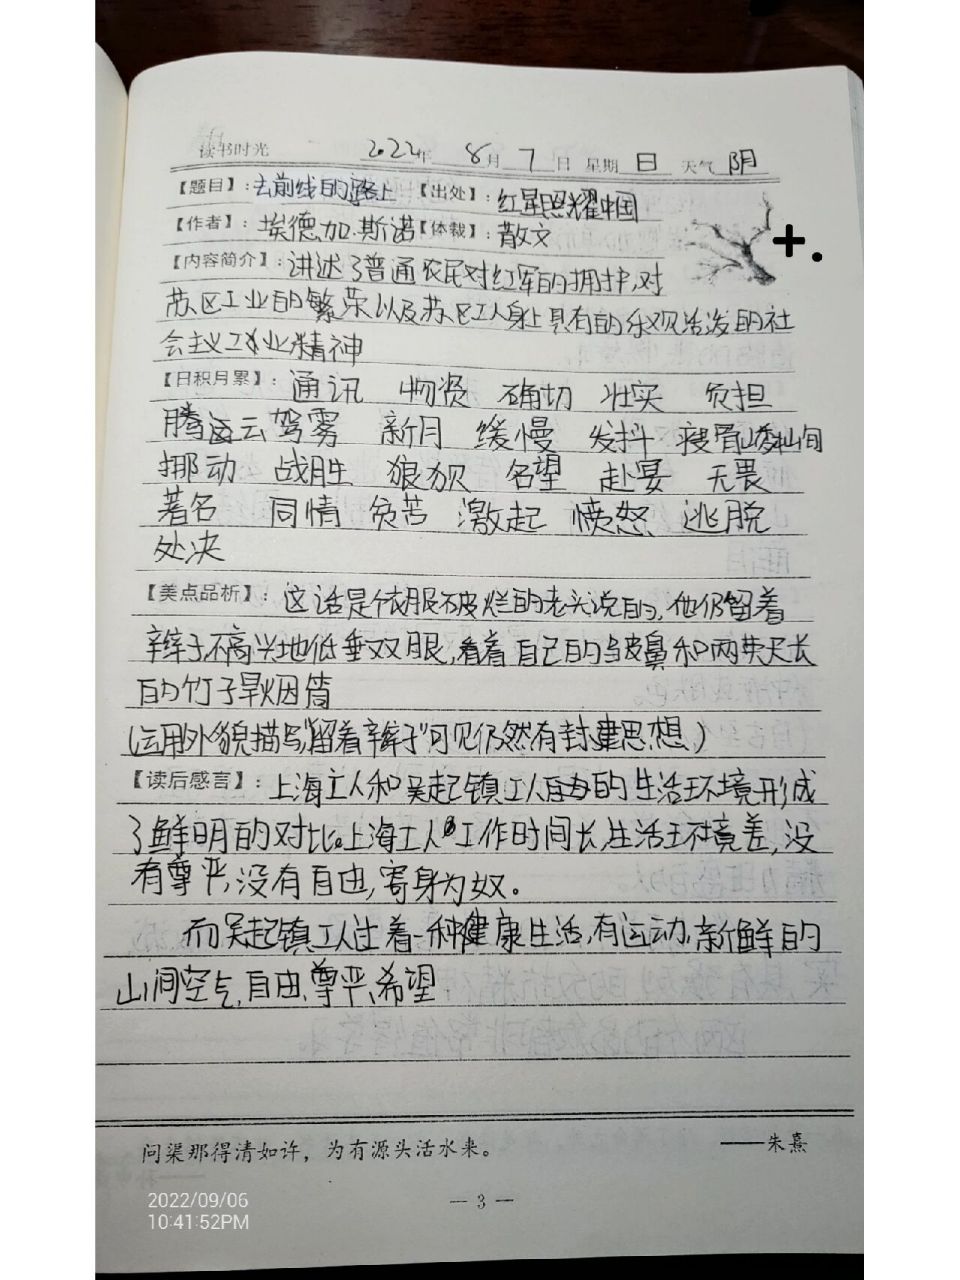 读书时光 2022年 8月 7日 星期 日 天气 阴
【题目】：去前线的路上 【出处】：红星照耀中国
【作者】：埃德加.斯诺【体裁】：散文
+.
【内容简介】：讲述了普通农民对红军的拥护,对
苏区工业的繁荣以及苏区工人身上具有的乐观活泼的社
会主义工业精神
【日积月累】：通讯 物资 确切 壮实 负担
腾云驾雾 新月 缓慢 发抖 瘦骨
挪动 战胜 狼狈 名望 赴宴 无畏
著名 同情 负苦 激起 愤怒 逃脱
处决
【美点品析】：这话是依服破烂的老头说的,他仍留着
辫子,不高兴地低垂双眼,看着自己的皮鼻和两英尺长
的竹子旱烟筒
(运用外貌描写,"留着辫子"可见仍然有封建思想.)
【读后感言】：上海工人和吴起镇工人的生活环境形成
了鲜明的对比。上海工人工作时间长,生活环境差,没
有尊严,没有自由,寄身为奴。
而吴起镇工人过着一种健康生活,有运动,新鲜的
山间空气,自由,尊严,希望
问渠那得清如许，为有源头活水来。 ——朱熹
— 3 —
2022/09/06
10:41:52PM